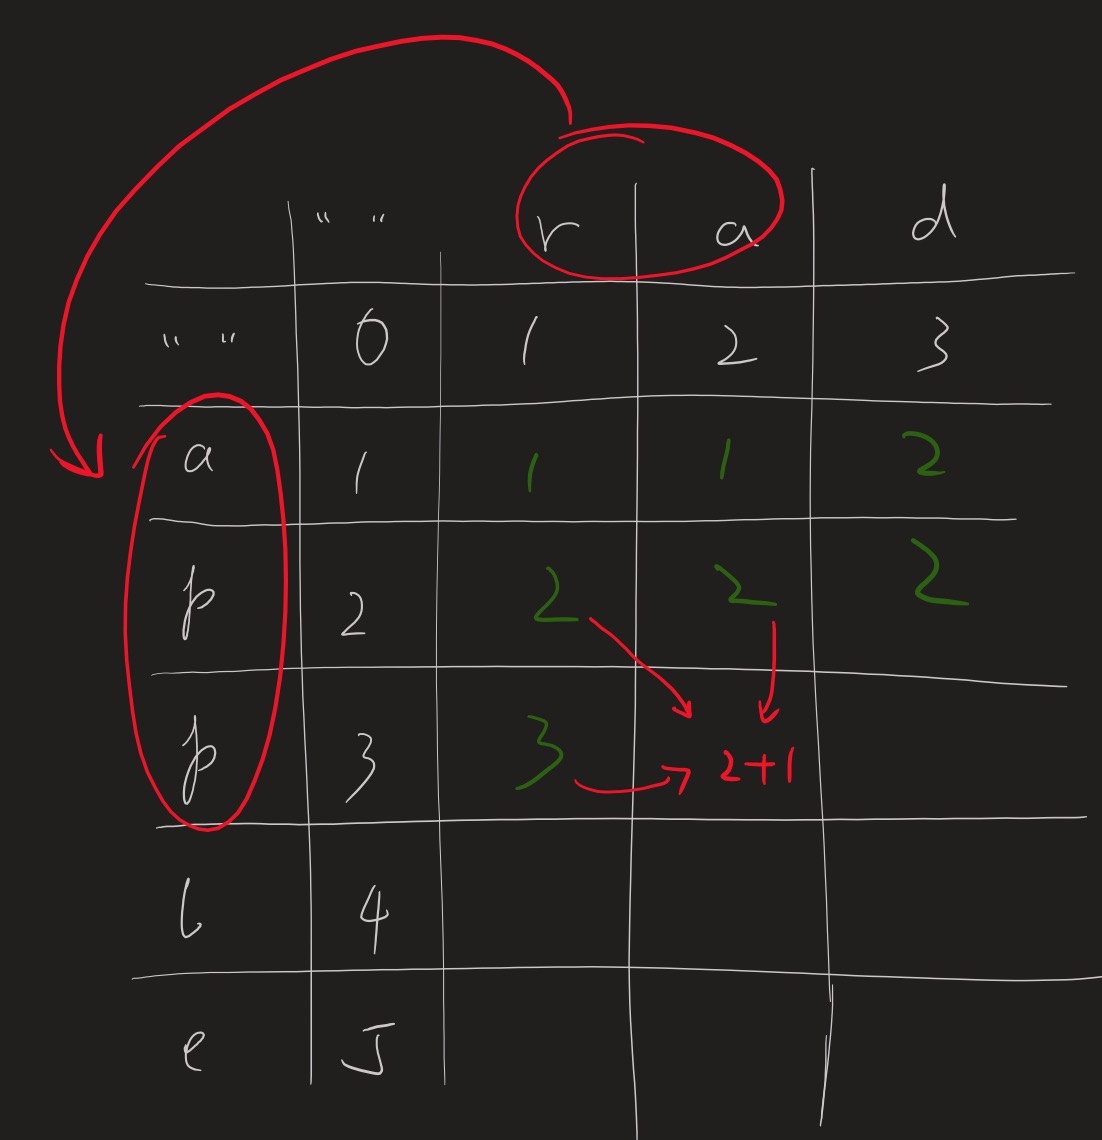 " " r a d
" " 0 1 2 3
a 1 1 1 2
p 2 2 2 2
p 3 3 2+1
l 4
e 5